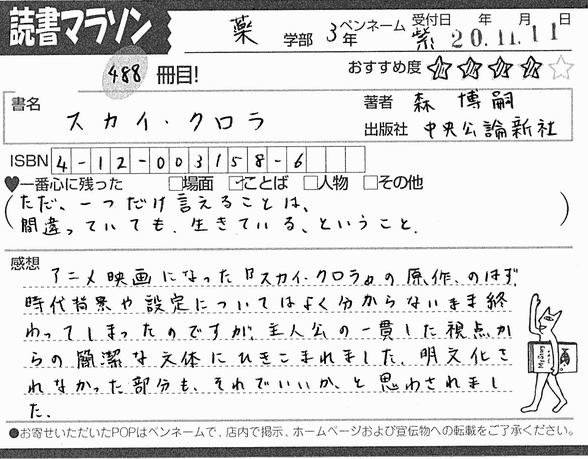 読書マラソン
薬 学部 3年 ペンネーム 紫 受付日 年 月 日
20.11.11
488 冊目! おすすめ度
書名 スカイ・クロラ
著者 森 博嗣
出版社 中央公論新社
ISBN 4-12-003158-6
♥一番心に残った □場面 ☑ことば □人物 □その他
(ただ、一つだけ言えることは、
間違っていても、生きている、ということ。)
感想
アニメ映画になった『スカイ・クロラ』の原作、のはず。
時代背景や設定についてはよく分からないまま終
わってしまったのですが、主人公の一貫した視点か
らの簡潔な文体にひきこまれました。明文化さ
れなかった部分も、それでいいか、と思わされまし
た。
●お寄せいただいたPOPはペンネームで、店内で掲示、ホームページおよび宣伝物への転載をご了承ください。